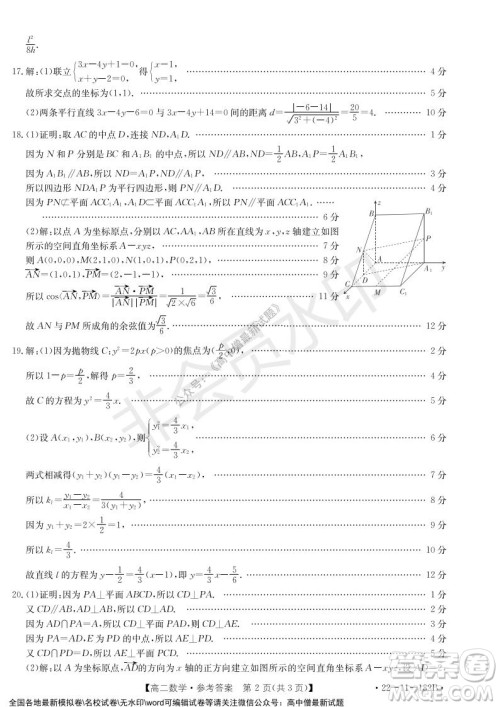 l²/8h.
17.解:(1)联立{3x-4y+1=0, x+y-2=0, 4分
故所求交点的坐标为(1,1). 6分
(2)两条平行直线3x-4y-6=0与3x-4y+14=0间的距离d=|-6-14|/√(3²+(-4)²)=20/5=4. 10分
18.(1)证明:取AC的中点D,连接ND,A₁D. 1分
因为N和P分别是BC和A₁B₁的中点,所以ND∥AB,ND=1/2AB. 2分
因为A₁B₁∥AB,所以ND∥A₁P,ND=A₁P. 3分
所以四边形NDA₁P为平行四边形,所以PN∥A₁D. 4分
因为PN⊄平面ACC₁A₁,A₁D⊂平面ACC₁A₁,所以PN∥平面ACC₁A₁.
6分
(2)解:以点A为坐标原点,分别以AC,AA₁,AB所在直线为x,y,z轴建立如
图所示的空间直角坐标系A-xyz, 7分
则A(0,0,0),M(2,1,0),N(1,0,1),P(0,2,1), 8分
因为AN=(1,0,1),PM=(2,-1,-1), 9分
所以cos⟨AN,PM⟩=AN·PM/|AN||PM|=1/(√2×√6)=√3/6, 11分
故AN与PM所成角的余弦值为√3/6. 12分
z
B
B₁
N
P
A
A₁
y
C
M
C₁
x
19.解:(1)因为抛物线C:y²=2px(p>0)的焦点为(p/2,0), 1分
所以1-p=p/2,解得p=2/3. 3分
故C的方程为y²=4/3x. 4分
(2)设A(x₁,y₁),B(x₂,y₂),则{y₁²=4/3x₁, y₂²=4/3x₂, 6分
两式相减得(y₁+y₂)(y₁-y₂)=4/3(x₁-x₂), 7分
所以k₁=(y₁-y₂)/(x₁-x₂)=4/3(y₁+y₂). 8分
因为y₁+y₂=2×1/2=1, 9分
所以k₁=4/3. 10分
故直线l的方程为y-1/2=4/3(x-1),即y=4/3x-5/6. 12分
20.(1)证明:因为PA⊥平面ABCD,所以CD⊥PA. 1分
又CD∥AB,AD⊥AB,所以CD⊥AD. 2分
因为AD∩PA=A,所以CD⊥平面PAD, 3分
又AE⊂平面PAD,所以CD⊥AE. 4分
因为AD=PA,E为PD的中点,所以AE⊥PD, 5分
又PD∩CD=D,所以AE⊥平面PCD. 6分
(2)解:因为PA⊥平面ABCD,AD⊥AB,所以建立如图所示的空间直角坐标系,
【高二数学·参考答案 第2页(共3页)】
非会员水印
公众号:《高中僧最新试题》
全国各地最新模拟卷\名校试卷\无水印\word可编辑试卷等请关注微信公众号:高中僧最新试题